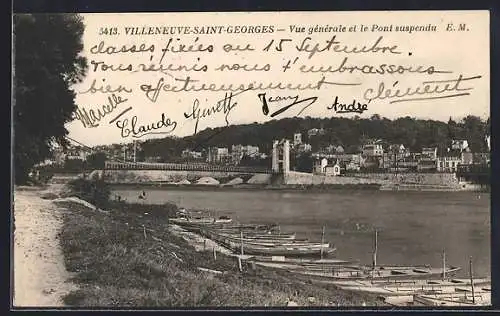 5413. VILLENEUVE-SAINT-GEORGES — Vue générale et le Pont suspendu E. M.
classes fixées au 15 Septembre.
Tous réunis nous t'embrassons
bien affectueusement
clément
Marcelle
Claude
Ginette
Jean
André